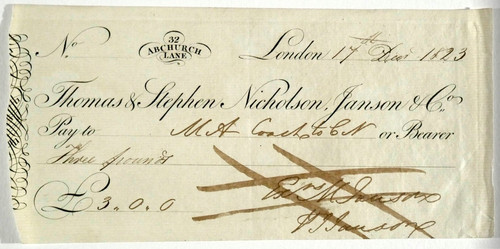 No
32
ABCHURCH
LANE
London 17th Decr 1823
Thomas & Stephen Nicholson, Janson & Co.
Pay to M A or Bearer
Three pounds
£ 3.0.0
Janson
Janson